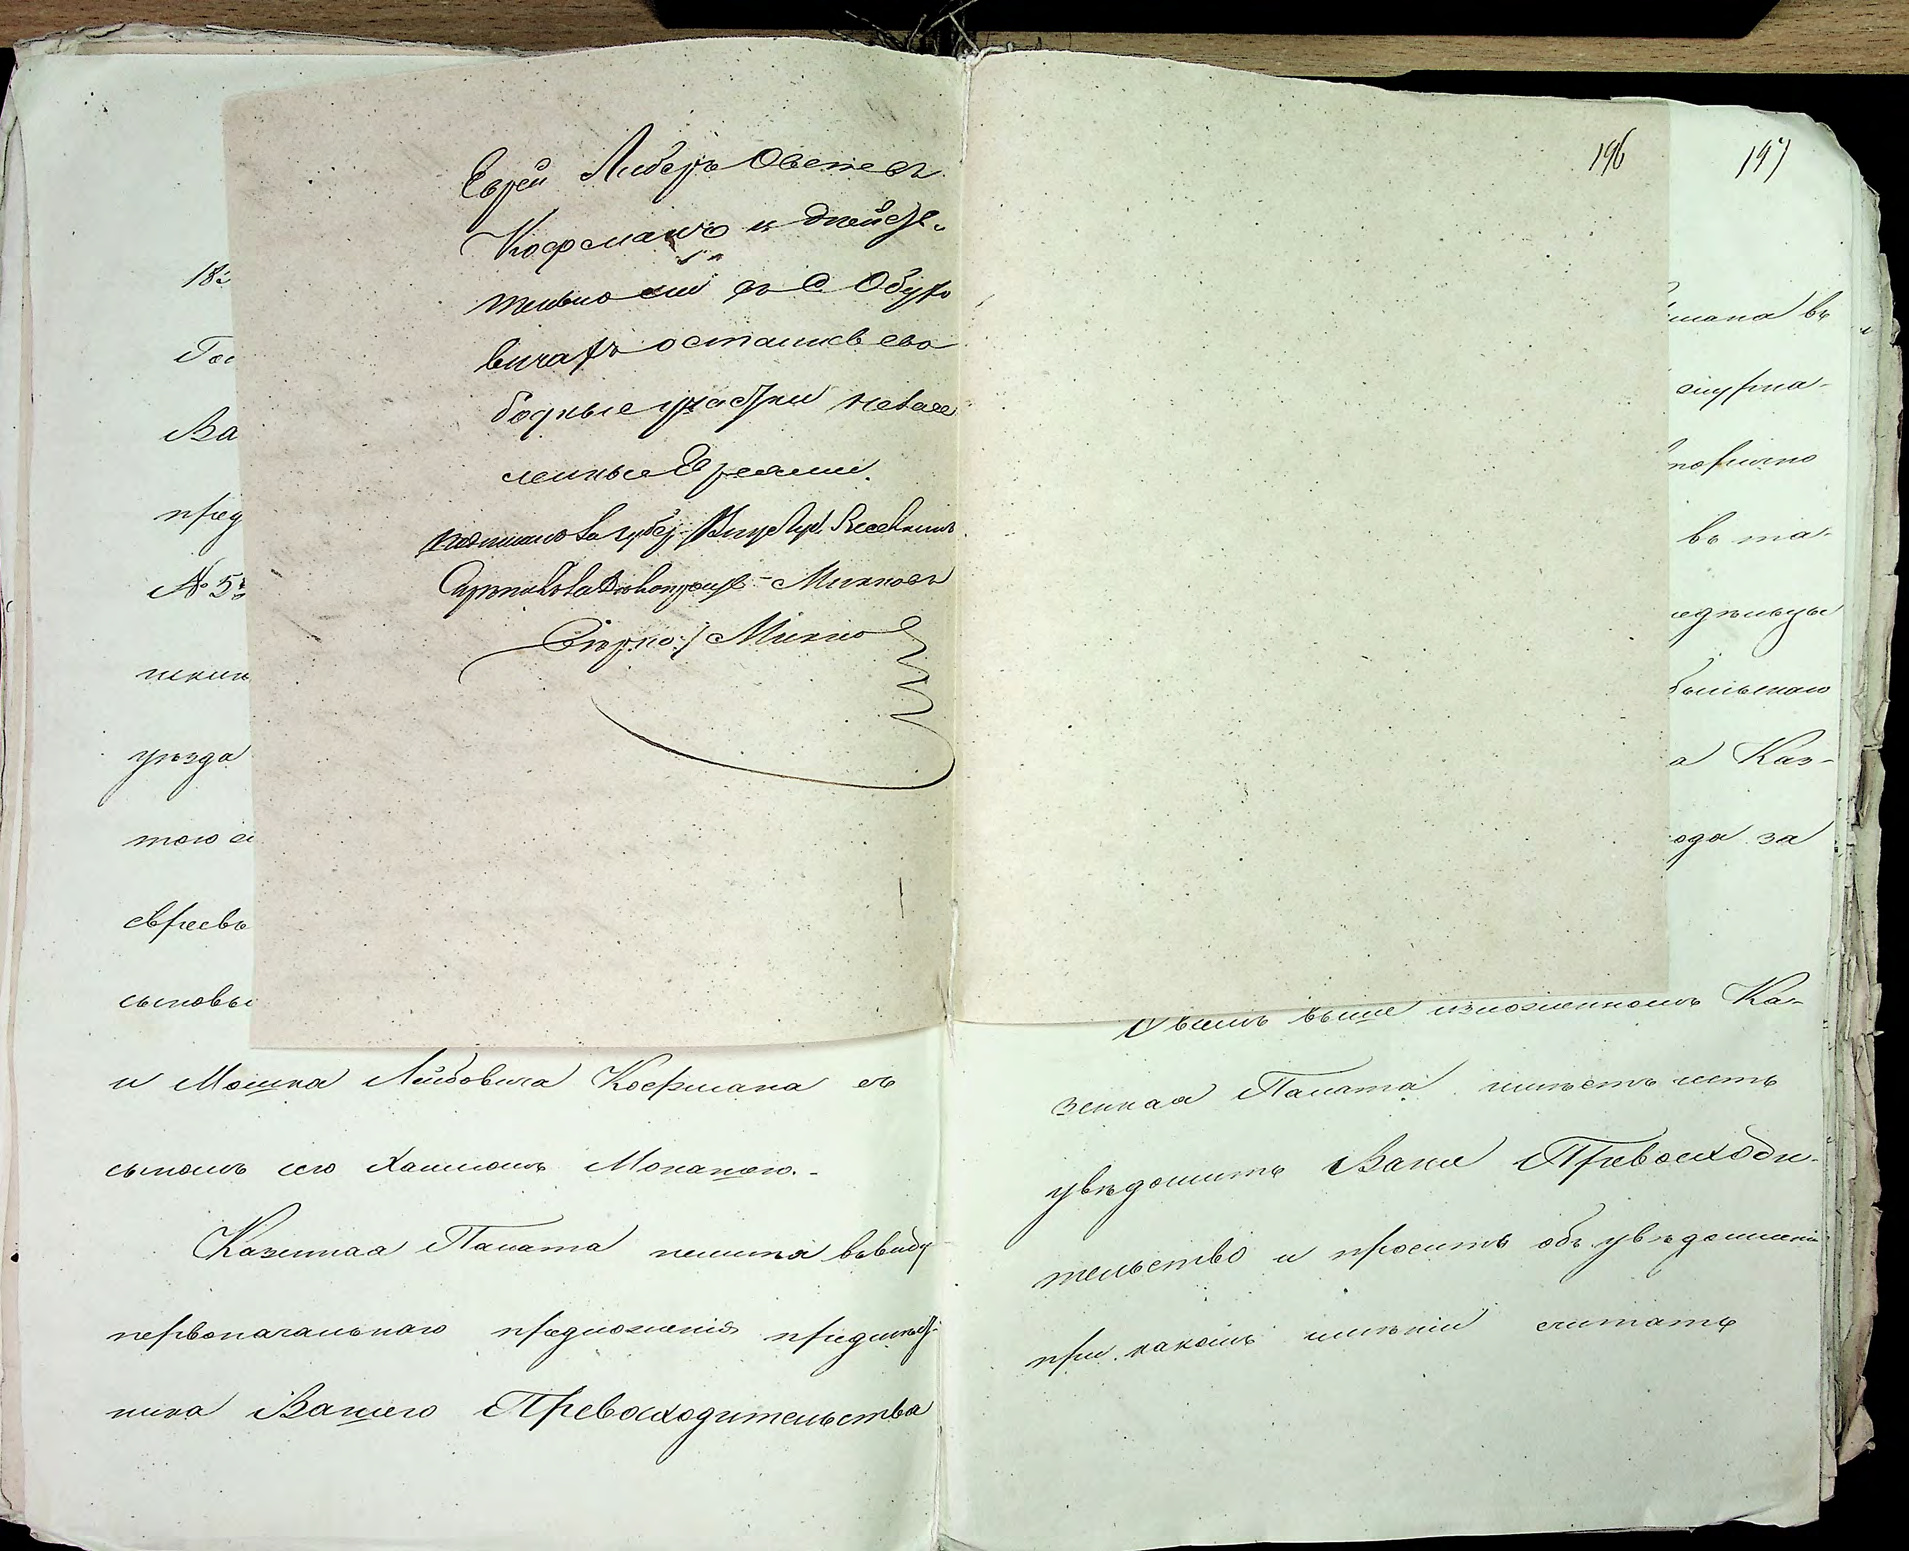 196
197
Еврей Либеръ Овсеевъ
Кофманъ и действи-
тельно ли въ с Обухо
вичахъ остались сво
бодные участки незасе
ленные Евреями.
подписалъ за Губер.
Верно: / Минко
183
Гос
Ва
пред
№ 5
уѣзда
того
евреевъ
сыновья
и Мошка Лейбовича Кофмана съ
сыномъ его Хаимомъ Мовшею.-
Казенная Палата имѣя ввиду
первоначальнаго предложенія предмѣст-
ника Вашего Превосходительства
мана въ
журна-
въ та-
а Каз-
ода за
О всемъ выше изложенномъ Ка-
зенная Палата имѣетъ честь
увѣдомить Ваше Превосходи-
тельство и проситъ объ увѣдомленіи
при какомъ имѣніи считать